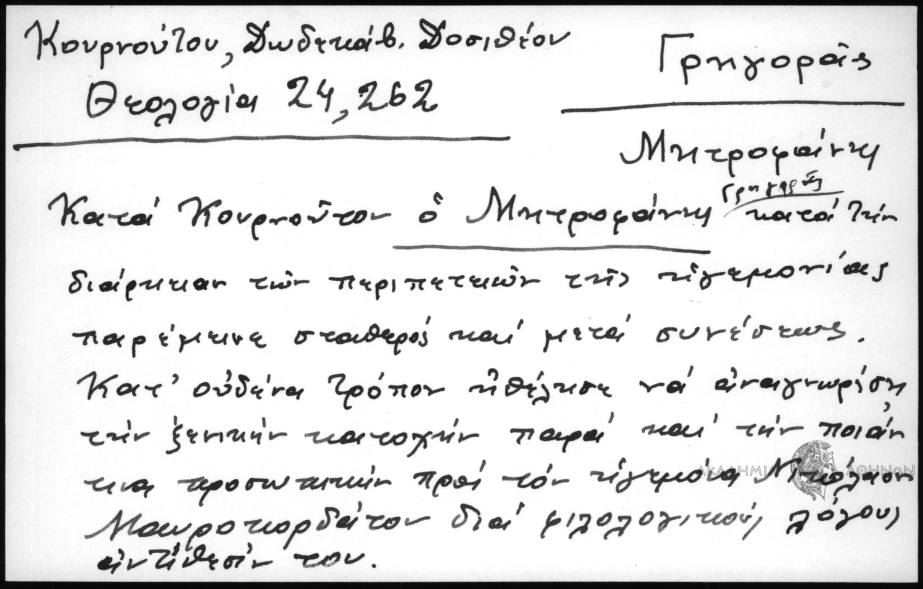 Κουρνούτου, Δωδεκάβ. Δοσιθέου
Θεολογία 24, 262
Γρηγοράς
Μητροφάνης
Κατά Κουρνοῦτον ὁ Μητροφάνης Γρηγορᾶς κατά τήν
διάρκειαν τῶν περιπετειῶν τῆς ἡγεμονίας
παρέμεινε σταθερός καί μετά συνέσεως.
Κατ' οὐδένα τρόπον ἠθέλησε νά ἀναγνωρίσῃ
τήν ξενικήν κατοχήν παρά καί τήν ποιάν
τινα προσωπικήν πρός τόν ἡγεμόνα Νικόλαον
Μαυροκορδᾶτον διά φιλολογικούς λόγους
ἀντίθεσίν του.
ΑΚΑΔΗΜΙΑ ΑΘΗΝΩΝ